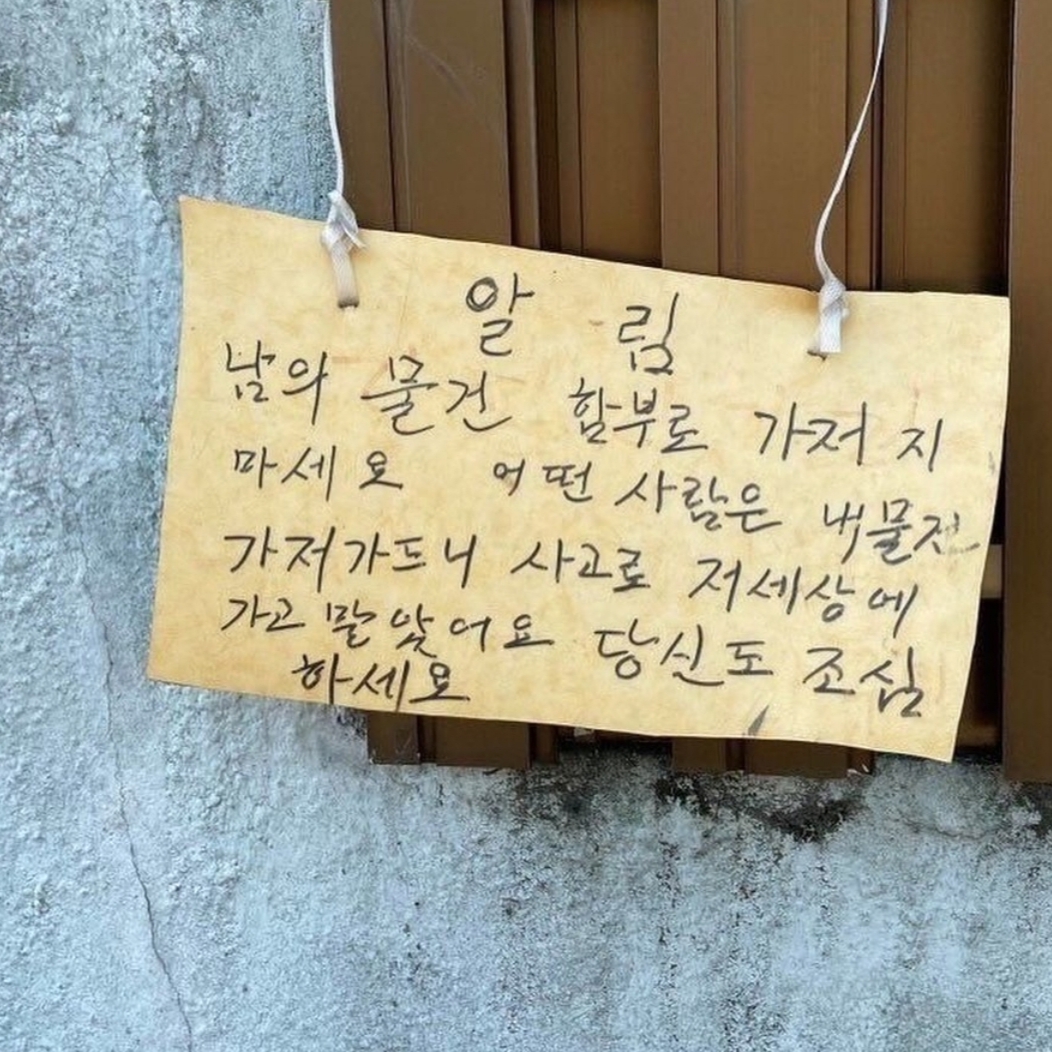 알 림
남의 물건 함부로 가저 지
마세요 어떤 사람은 내물건
가저가드니 사고로 저세상에
가고 말았어요 당신도 조심
하세요